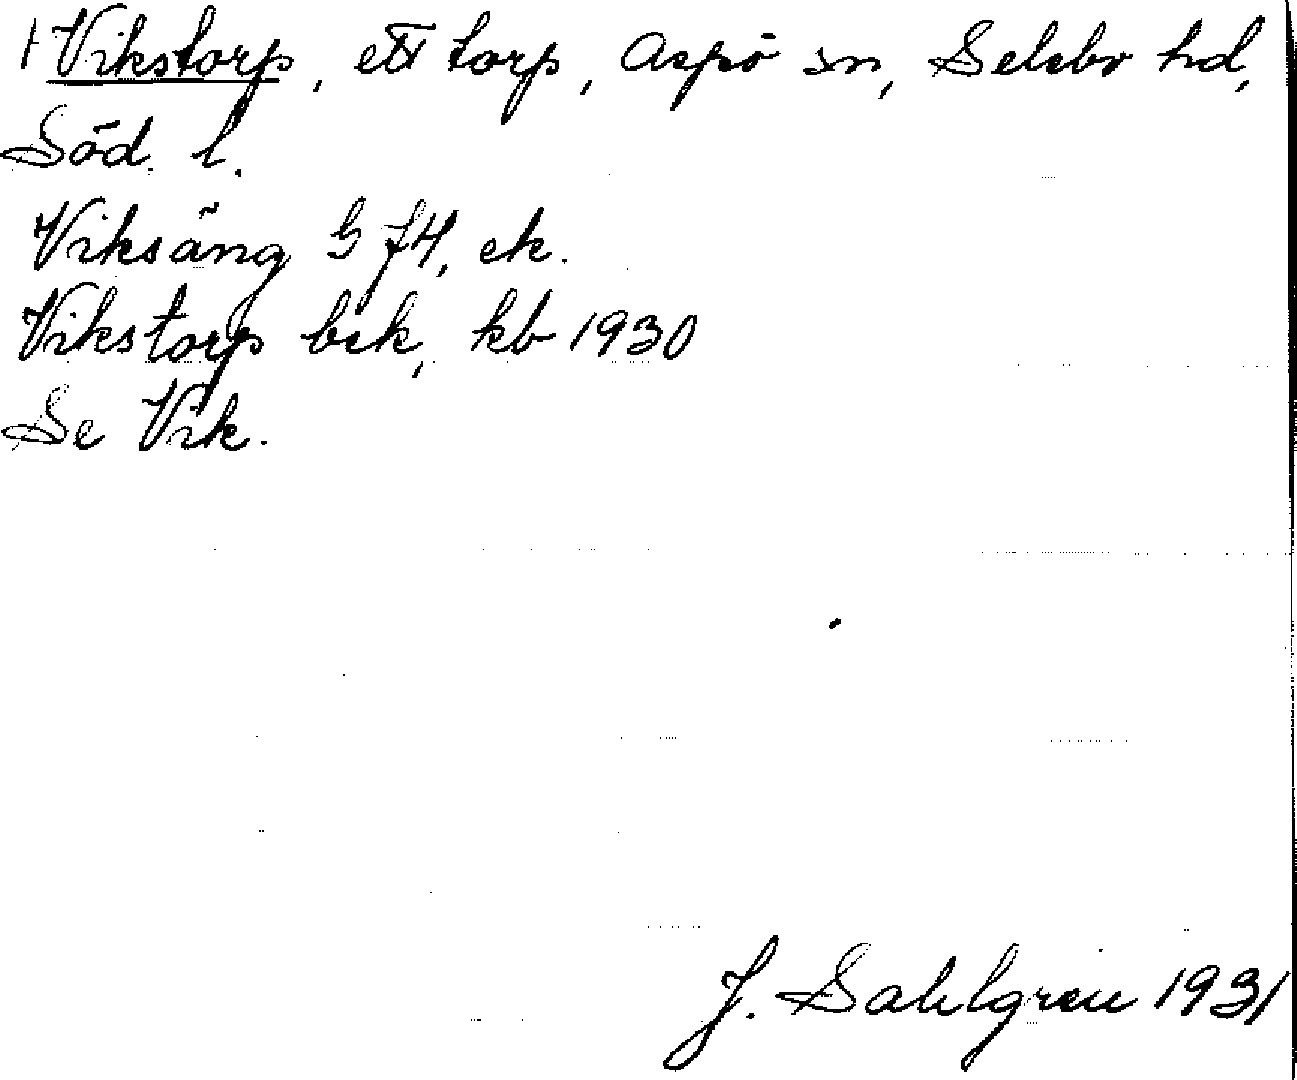 † Vikstorp, ett torp, Aspö sn, Selebo hd,
Söd. l.
Viksäng G f4, ek.
Vikstorp bek, kb 1930
Se Vik.
J. Sahlgren 1931